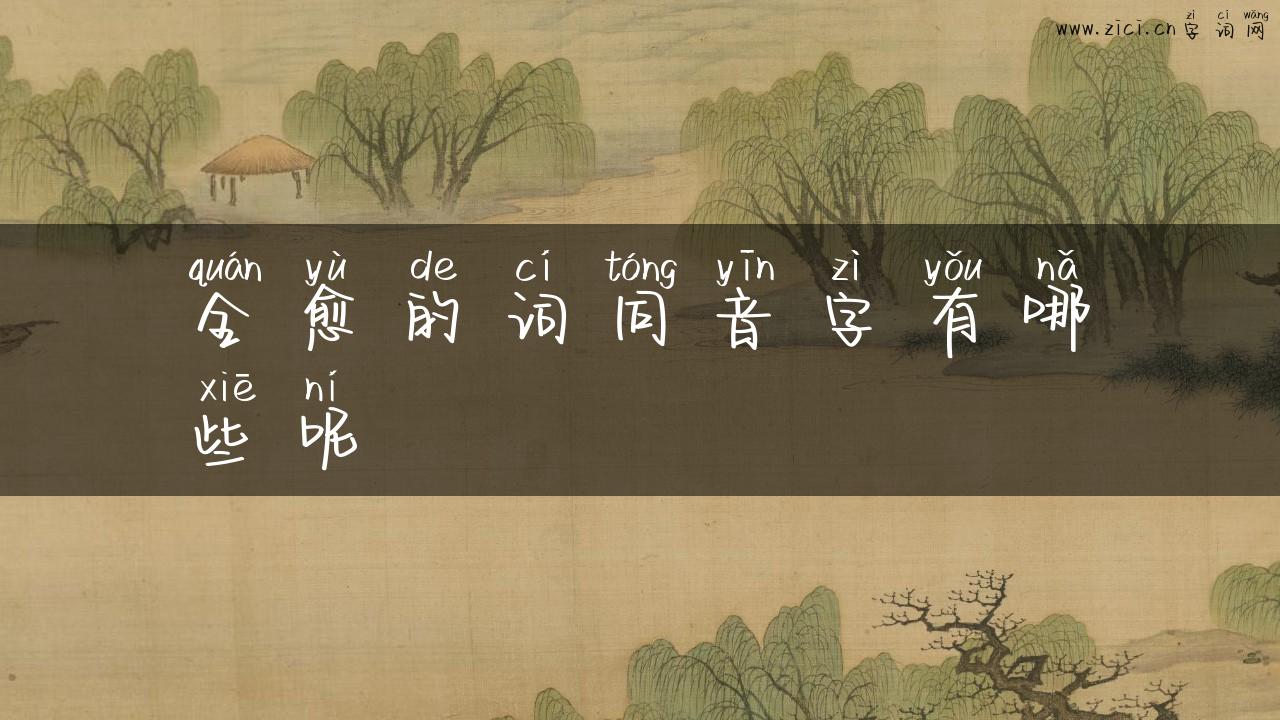 zì cí wǎng
www.zici.cn 字词网
quán yù de cí tóng yīn zì yǒu nǎ
全愈的词同音字有哪
xiē ní
些呢